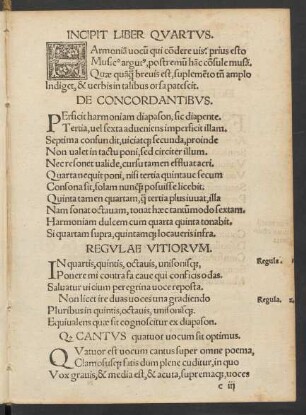 INCIPIT LIBER QVARTVS.
HArmeniā vocū qui cōdere vis: prius esto
Musę argut, postremū hāc cōsule musā.
Quę quāq̃ breuis est, suplemēto tñ amplo
Indiget, & verbis in talibus orsa patescit.
DE CONCORDANTIBVS.
PErficit harmoniam diapason, sic diapente.
Tertia, vel sexta adueniens imperficit illam.
Septima confundit, uiciatq; secunda, proinde
Non ualet in tactu poni, sed circiter illum.
Nec resonet ualide, cursu tamen effluat acri.
Quarta nequit poni, nisi tertia quintaue secum
Consona sit, solam nuncq̃ posuisse licebit.
Quinta tamen quartam, q̃ tertia plus iuuat, illa
Nam sonat octauam, touat hæc tantūmodo sextam.
Harmoniam dulcem cum quarta quinta tonabit.
Si quartam supra, quintamq; locaueris infra.
REGVLAE VITIORVM.
IN quartis, quintis, octauis, unisonisq;, Regula
Ponere mi contra fa caue qui conficis odas.
Saluatur uicium peregrina uoce reposta.
Non licet ire duas uoces una gradiendo Regula.
Pluribus in quintis, octauis, unisonisq;.
Equiualens quæ sit cognoscitur ex diapason.
Q CANTVS quatuor uocum sit optimus.
QVatuor est uocum cantus super omne poema,
Clamosusq; satis dum plene cuditur, in quo
Vox grauis, & media est, & acuta, supremaq;, uoces
c iij